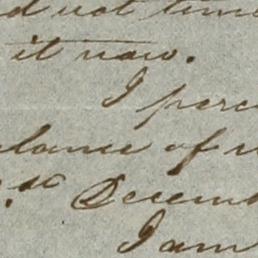 d not time
it now.
I perce
balance of
Decem
I am